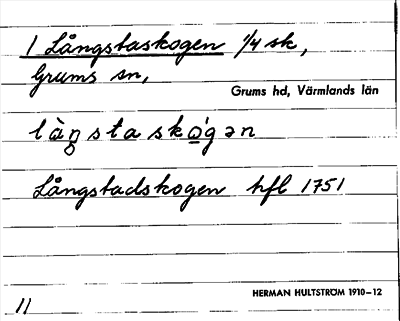 1 Långstaskogen 1/4 sk,
Grums sn,
Grums hd, Värmlands län
làŋstaskǫ́gən
Långstadskogen hfl 1751
HERMAN HULTSTRÖM 1910–12
11